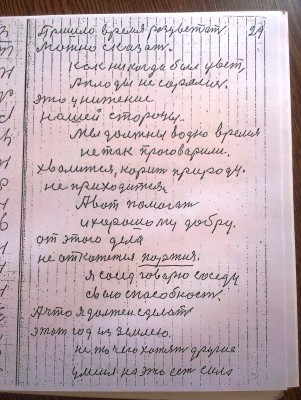 29
Пришло время розцветат
Можно сказат.
Как никогда был цвет,
А плоды не
это унижение
нашей стороны.
Мы должны водно время
не так проговарили.
хвалится, корит природу.
не приходится.
А вот помогат
ихорошому добру.
от этого дела
не откажется партия.
я сосед говорю соседу
свою способност.
А что я должен сделат
этот год из землею.
не то чего хотят другие
у меня на это ест сила